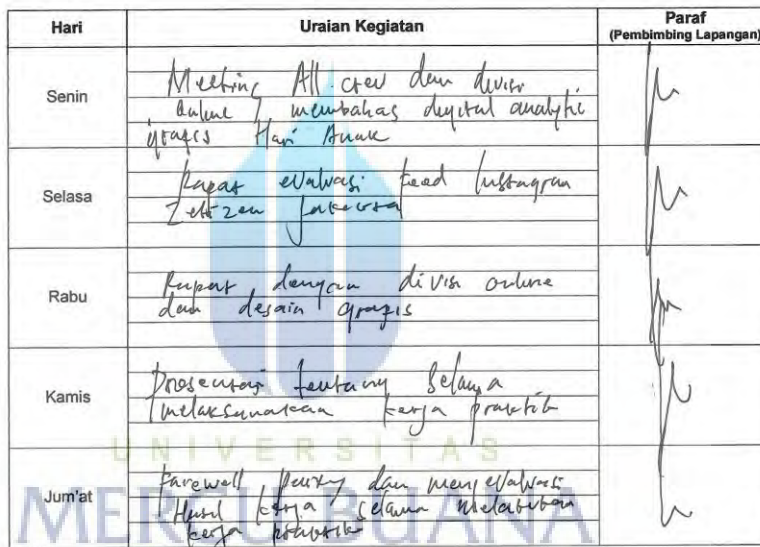 Hari
Uraian Kegiatan
Paraf
(Pembimbing Lapangan)
Senin
Meeting All crew dan divisi
online, membahas digital analytic
grafis Hari Anak
Selasa
Rapat evaluasi feed Instagram
Zetizen
Rabu
Rapat dengan divisi online
dan desain grafis
Kamis
Presentasi tentang selama
melaksanakan kerja praktik
Jum'at
Farewell party dan mengevaluasi
Hasil kerja selama melakukan
kerja praktik
UNIVERSITAS
MERCU BUANA